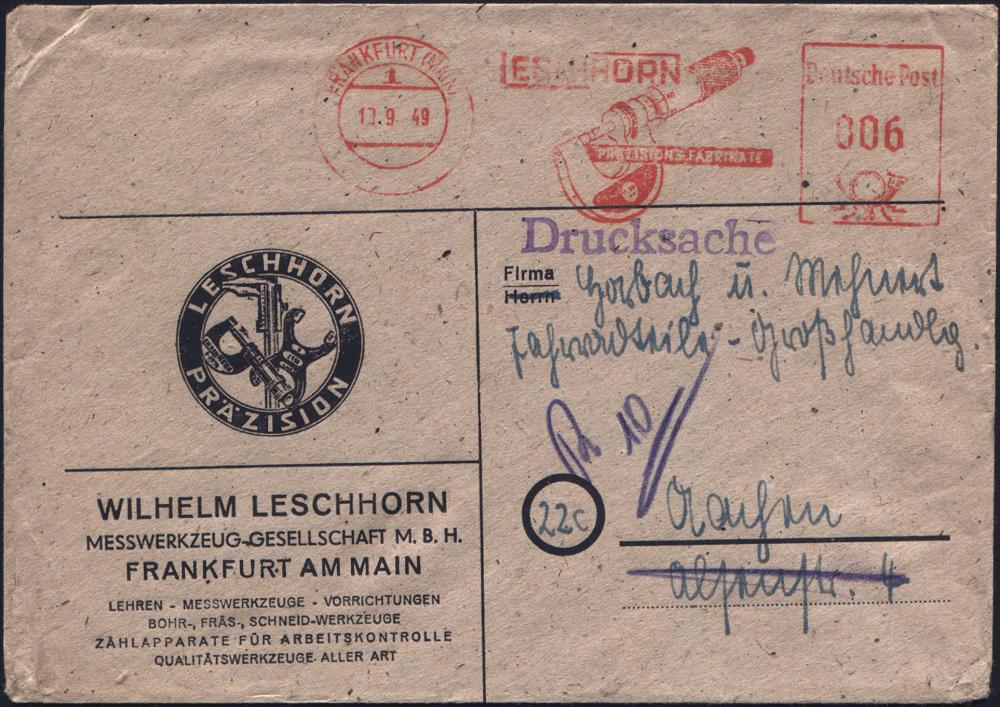 FRANKFURT (MAIN)
1
13.9 49
LESCHHORN
PRÄZISIONS-FABRIKATE
Deutsche Post
006
Drucksache
LESCHHORN
PRÄZISION
Firma
Herrn
Horbach u. Mehnert
Fahrradteile-Großhandlg.
10
22c
Aachen
Alsenstr. 4
WILHELM LESCHHORN
MESSWERKZEUG-GESELLSCHAFT M. B. H.
FRANKFURT AM MAIN
LEHREN - MESSWERKZEUGE - VORRICHTUNGEN
BOHR-, FRÄS-, SCHNEID-WERKZEUGE
ZÄHLAPPARATE FÜR ARBEITSKONTROLLE
QUALITÄTSWERKZEUGE ALLER ART